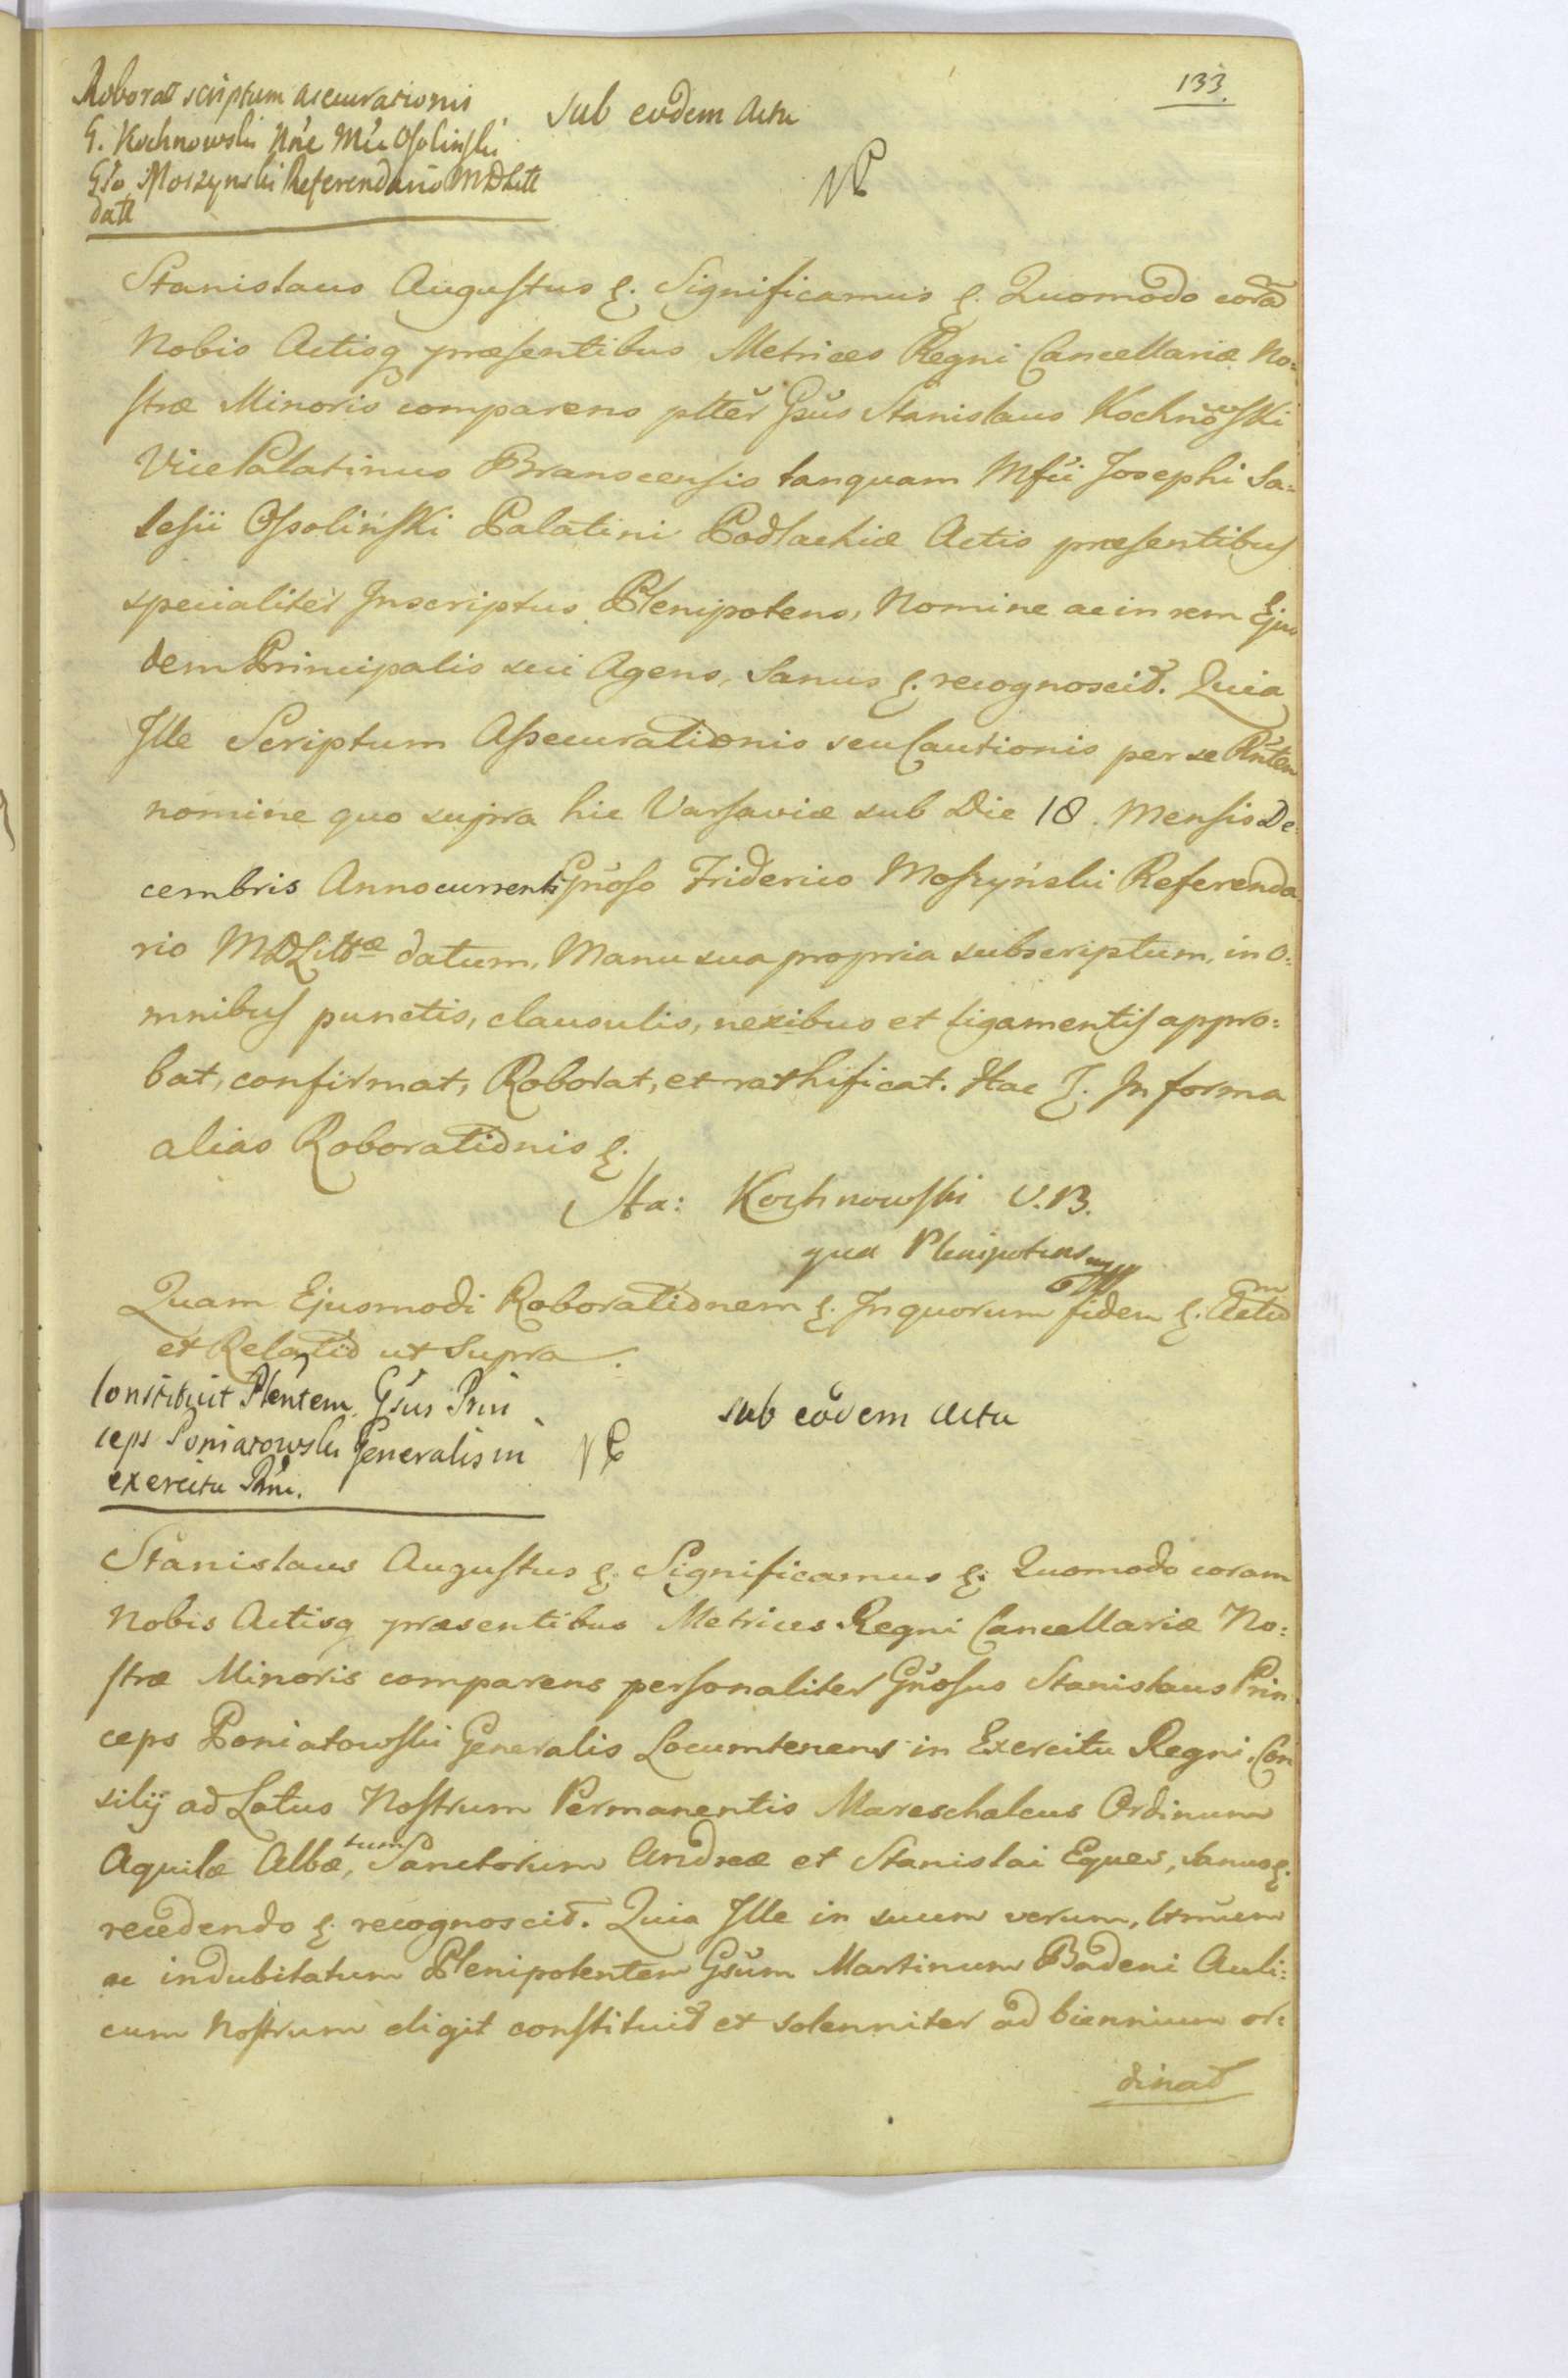 133.
Roborat scriptum asecurationis
G. Kochnowski Nne Mci Osolinski
Gso Moszynski Referendario MDLitt
datt
sub eodem Actu
Stanislaus Augustus &. Significamus &. Quomodo corã
Nobis Actisq præsentibus Metrices Regni Cancellariæ No:
stræ Minoris comparens plter Gsus Stanislaus Kochnowski
Vice Palatinus Branscensis tanquam Mfci Josephi Sa:
lesii Ossolinski Palatini Podlachiæ Actis præsentibus
specialiter Inscriptus Plenipotens, Nomine ac in rem Ejus
dem Principalis sui Agens, Sanus &. recognoscit. Quia
Ille Scriptum Assecurationis seu Cautionis per se Rntem
nomine quo supra hic Varsaviæ sub Die 18. Mensis De:
cembris Anno currenti Gnoso Friderico Moszyński Referenda
rio MDLittæ datum, Manu sua propria subscriptum, in o:
mnibus punctis, clausulis, nexibus et ligamentis appro:
bat, confirmat, Roborat, et rathificat. Hac &. In forma
alias Roborationis &.
Sta: Kochnowski V.B.
qua Plenipotens mpp
Quam Ejusmodi Roborationem &. In quorum fidem &. Actum
et Relatio ut Supra.
Constituit Plentem Gsus Prin
ceps Poniatowski Generalis in
exercitu Rni.
sub eodem Actu
Stanislaus Augustus &. Significamus &. Quomodo coram
Nobis Actisq præsentibus Metrices Regni Cancellariæ No:
stræ Minoris comparens personaliter Gnosus Stanislaus Prin
ceps Poniatowski Generalis Locumtenens in Exercitu Regni. Con
silij ad Latus Nostrum Permanentis Mareschalcus Ordinum
Aquilæ Albæ, tum Sanctorum Andreæ et Stanislai Eques, Sanus &.
recedendo &. recognoscit. Quia Ille in suum verum, ltmum
ac indubitatum Plenipotentem Gsum Martinum Badeni Auli:
cum Nostrum eligit constituit et solenniter ad biennium or:
dinat